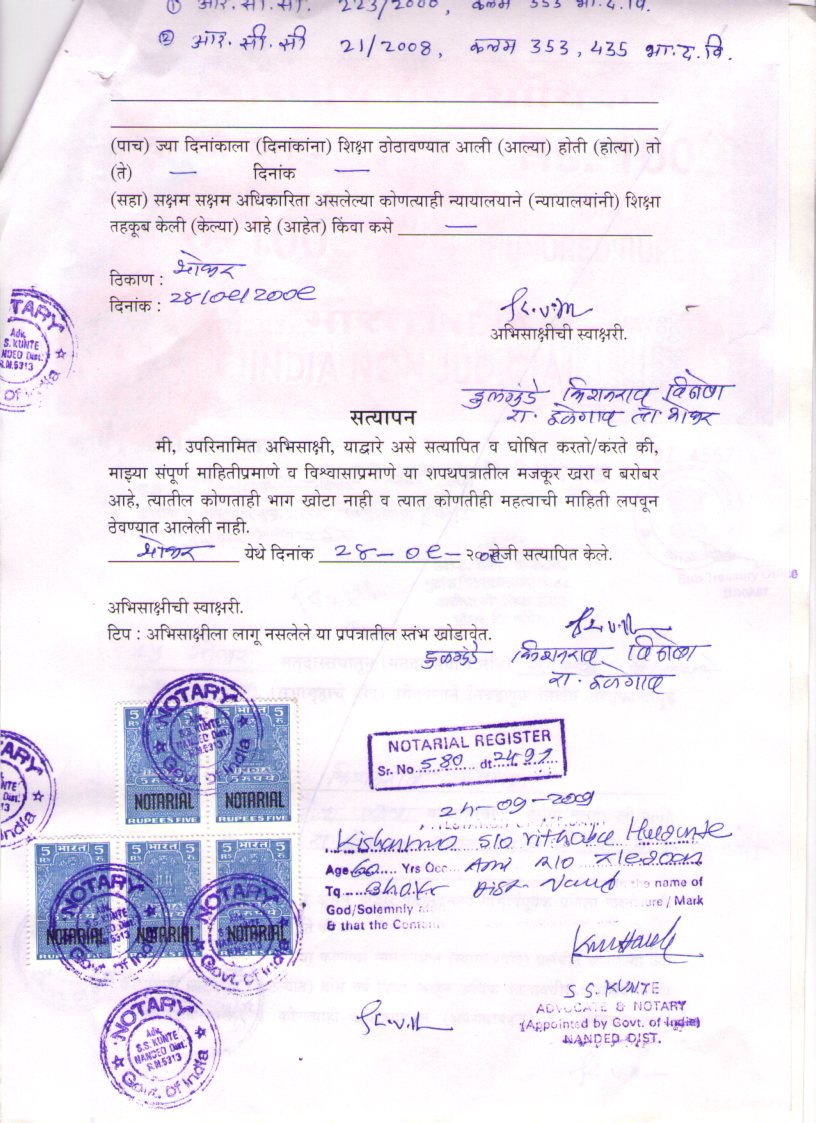 ① आर. सी. सी. 223/2000, कलम 353 भा.द.वि.
② आर. सी. सी 21/2008, कलम 353, 435 भा.द.वि.
(पाच) ज्या दिनांकाला (दिनांकांना) शिक्षा ठोठावण्यात आली (आल्या) होती (होत्या) तो
(ते) — दिनांक —
(सहा) सक्षम सक्षम अधिकारिता असलेल्या कोणत्याही न्यायालयाने (न्यायालयांनी) शिक्षा
तहकूब केली (केल्या) आहे (आहेत) किंवा कसे —
ठिकाण : भोकर
दिनांक : २८/०९/२००९
अभिसाक्षीची स्वाक्षरी.
किशनराव विठोबा
रा. हळेगाव ता भोकर
सत्यापन
मी, उपरिनामित अभिसाक्षी, याद्वारे असे सत्यापित व घोषित करतो/करते की,
माझ्या संपूर्ण माहितीप्रमाणे व विश्वासाप्रमाणे या शपथपत्रातील मजकूर खरा व बरोबर
आहे, त्यातील कोणताही भाग खोटा नाही व त्यात कोणतीही महत्वाची माहिती लपवून
ठेवण्यात आलेली नाही.
भोकर येथे दिनांक २८-०९-२००९ रोजी सत्यापित केले.
अभिसाक्षीची स्वाक्षरी.
टिप : अभिसाक्षीला लागू नसलेले या प्रपत्रातील स्तंभ खोडावेत.
किशनराव विठोबा
रा. हळेगाव
NOTARY
Adv.
S.S. KUNTE
NANDED Dist.
R.N.5313
Govt. of India
5 भारत 5
RS रु.
NOTARIAL
RUPEES FIVE
NOTARIAL REGISTER
Sr. No. 580 dt
-09-2009
Kishanrao s/o Vithoba
Age 60 Yrs Occ. r/o
Tq. Bhokar Dist. Nanded in the name of
God/Solemnly
& that the
S. S. KUNTE
ADVOCATE & NOTARY
(Appointed by Govt. of India)
NANDED DIST.
Sub Treasury Office
Bhokar